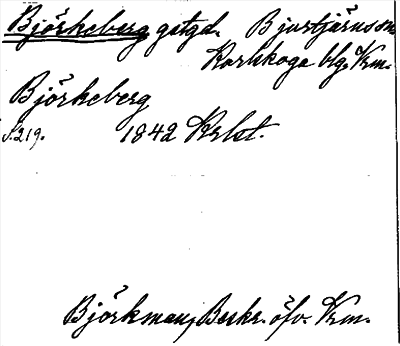 Björkeberg gstgd. Bjurtjärns sn
Karlskoga blg. Vrm.
Björkeberg
S. 219. 1842 Krlst.
Björkman, Beskr. öfv. Vrm.